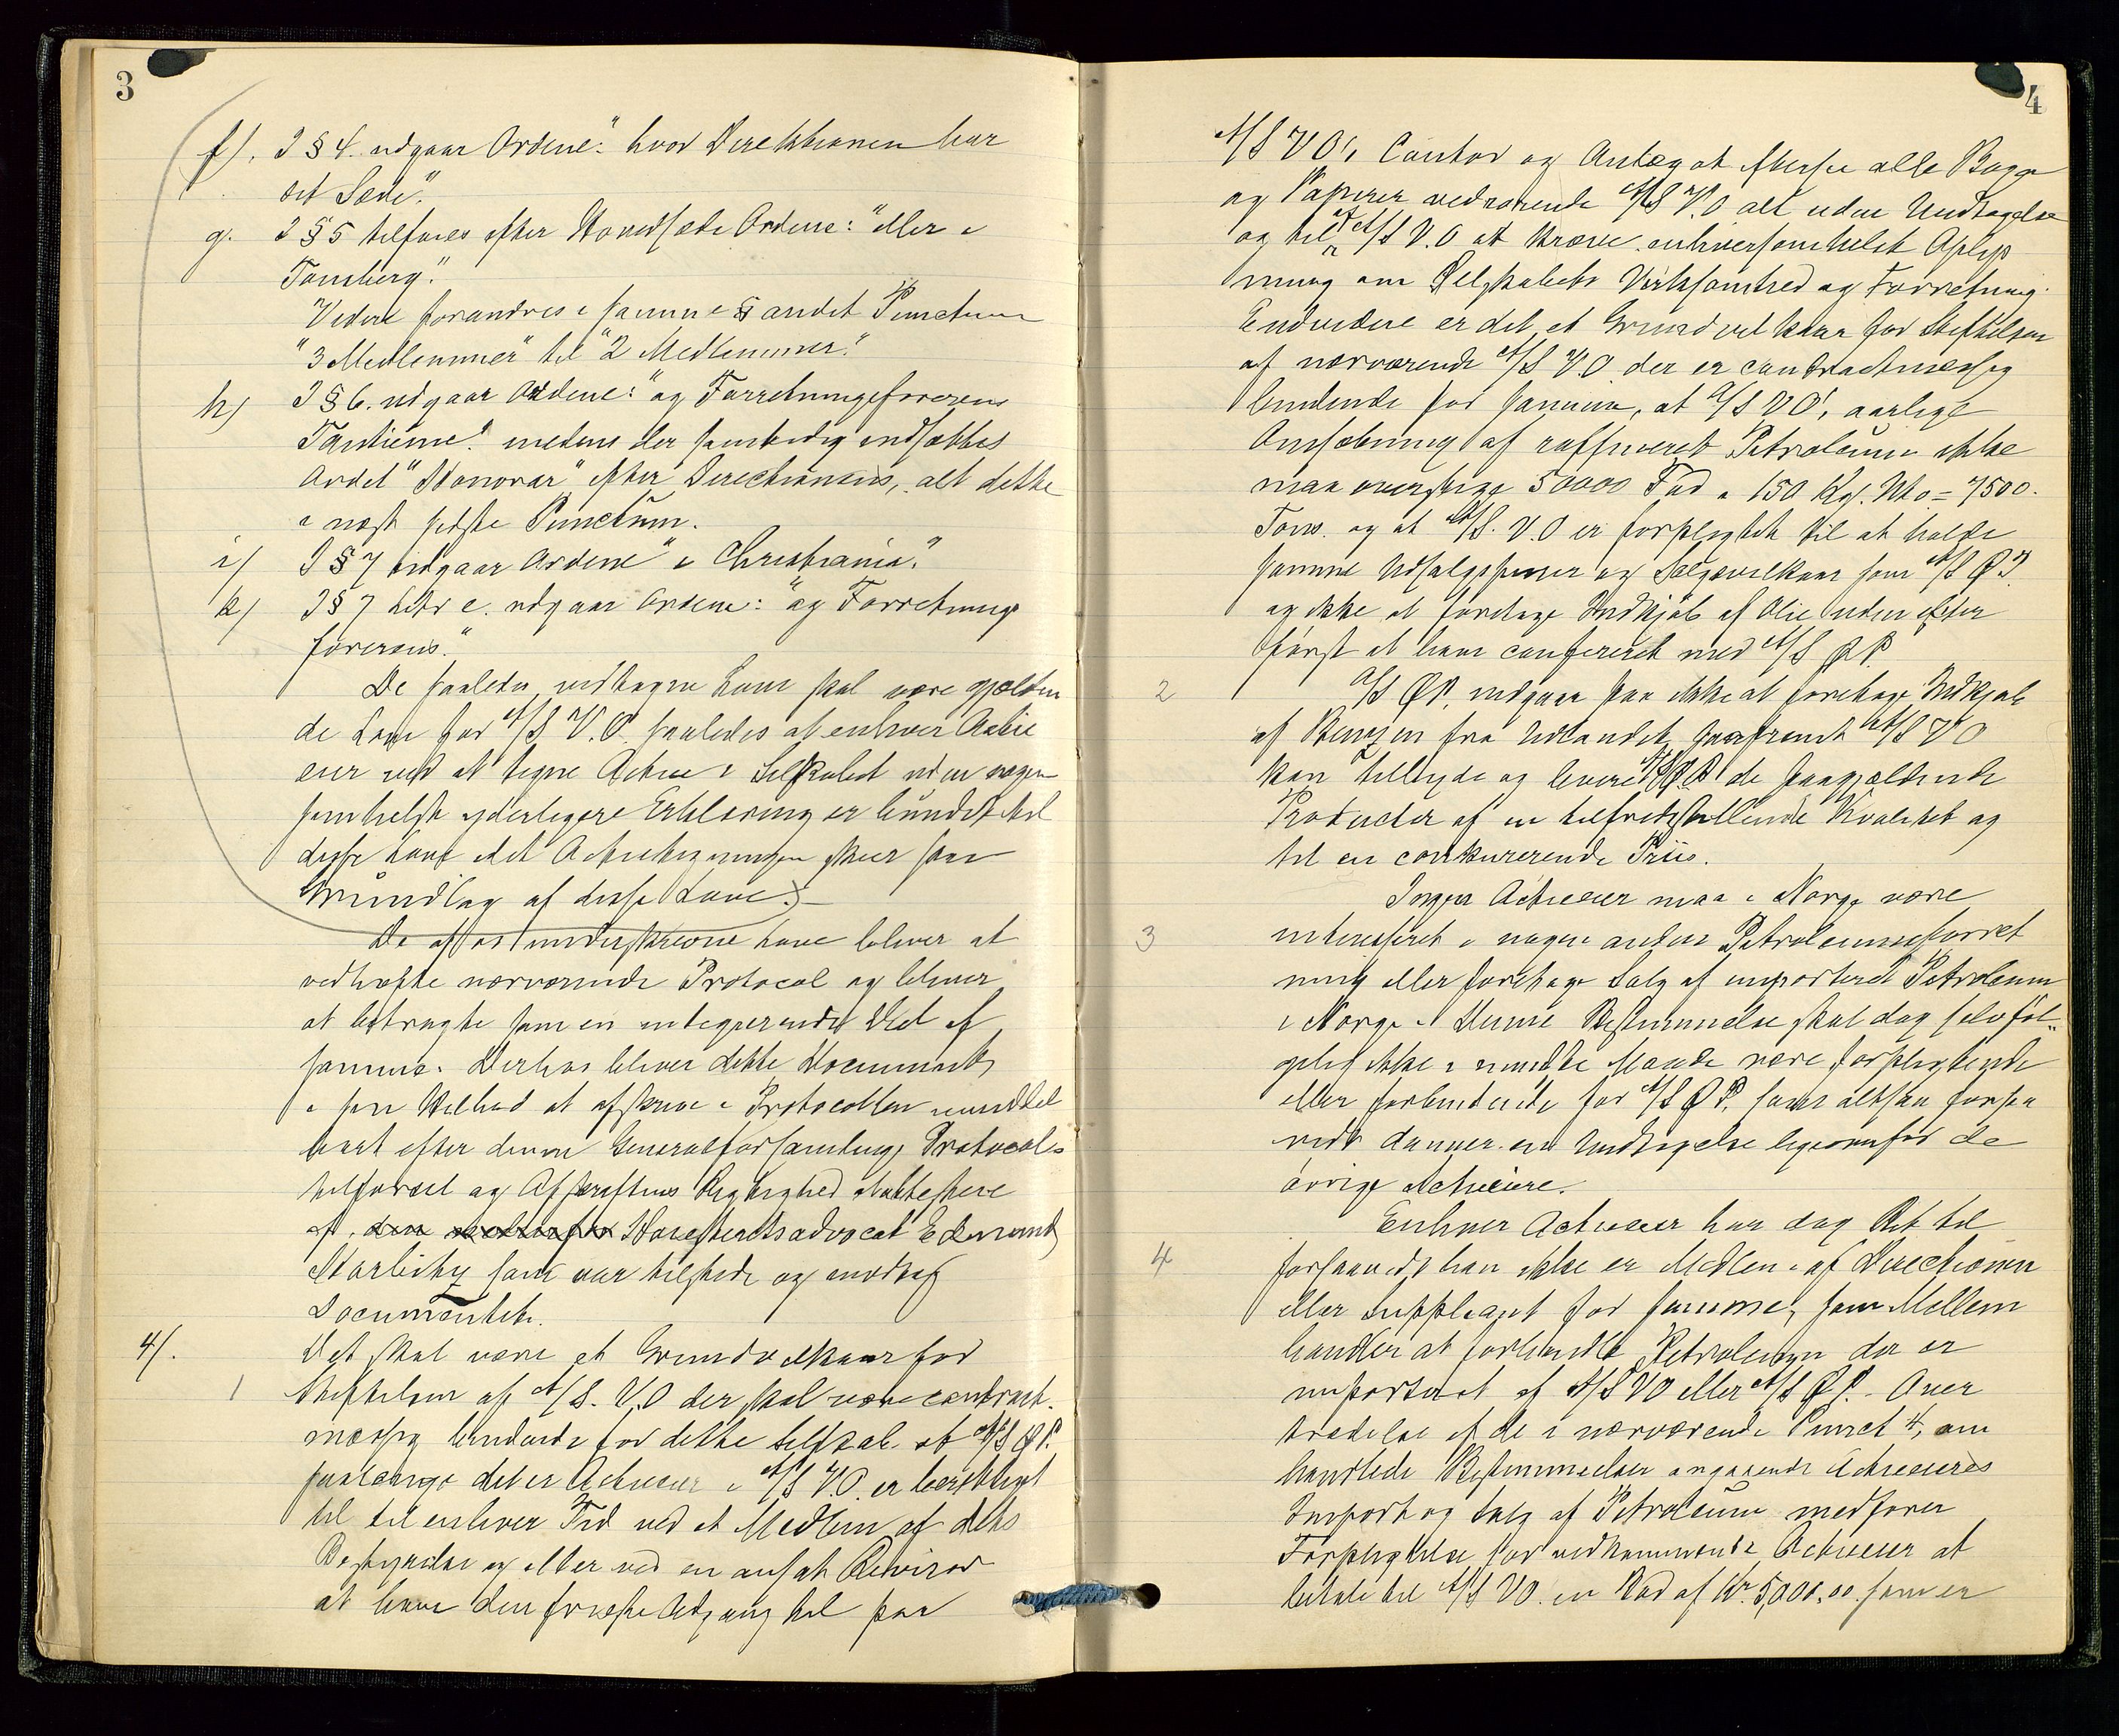 3
f). I § 4. udgaar Ordene: "hvor Direktionen har
sit Sæde".
g. I § 5 tilføies efter Hovedsæde Ordene: "eller i
Tønsberg."
Videre forandres i samme § andet Punctum
"3 Medlemmer" til "2 Medlemmer".
h) I § 6. udgaar Ordene: "og Forretningsførerens
Tantième" medens der samtidig indsættes
Ordet "Honorar" efter Directionens, alt dette
i næst sidste Punctum.
i) I § 7 udgaar Ordene "i Christiania".
k) I § 7 Litr e. udgaar Ordene: "og Forretnings
førerens."
De saaledes vedtagne Love skal være gjælden
de Love for A/S V.O. saaledes at enhver Actie
eier ved at tegne Actier i Selskabet uden nogen
somhelst yderligere Erklæring er bundet til
disse Love idet Actietegningen skeer paa
Grundlag af disse Love.
De af os underskrevne Love bliver at
vedhæfte nærværende Protocol og bliver
at betragte som en integrerende Del af
samme. Derhos bliver dette Document
i sin Helhed at afskrive i Protocollen umiddel
bart efter denne Generalforsamlings Protocol-
tilførsel og Afskriftens Rigtighed at attestere
af Høiesteretsadvocat Edmund
Harbitz som var tilstede og modtog
Documentet.
4). Det skal være et Grundvilkaar for
1 Stiftelsen af A/S. V.O der skal være contract-
mæssig bindende for dette Selskab at A/S Ø.P.
saalænge det er Actieeier i A/S V.O. er berettiget
til til enhver Tid ved et Medlem af dets
Bestyrelse og eller ved en ansat Revisor
at have den frieste Adgang til paa
4
A/S VO's Contor og Anlæg at eftersee alle Bøger
og Papirer vedrørende A/S V.O alt uden Undtagelse
og til af A/S V.O at kræve enhversomhelst Oplys
ning om Selskabets Virksomhed og Forretning.
Endvidere er det et Grundvilkaar for Stiftelsen
af nærværende A/S V.O. der er contractmæssig
bindende for samme, at A/S VO's aarlige
Omsætning af raffineret Petroleum ikke
maa overstige 50000 Fad a 150 Kg. Nto = 7500.
Tons. og at A/S. V.O er forpligtet til at holde
samme Udsalgspriser og Salgsvilkaar som A/S Ø.P.
og ikke at foretage Indkjøb af Olie uden efter
først at have confereret med A/S Ø.P.
2 A/S Ø.P. indgaar paa ikke at foretage Indkjøb
af Benzin fra Udlandet, saafremt A/S VO
kan tilbyde og levere A/S Ø.P. de paagjældende
Producter af en tilfredsstillende Kvalitet og
til en conkurerende Priis.
Ingen Actieeier maa i Norge være
3 interesseret i nogen anden Petroleumsforret
ning eller foretage Salg af importeret Petroleum
i Norge. Denne Bestemmelse skal dog selvføl-
gelig ikke i mindste Maade være forpligtende
eller forbindende for A/S Ø.P. som altsaa forsaa
vidt danner en Undtagelse ligeoverfor de
øvrige Actieeiere.
Enhver Actieeier har dog Ret til
4 forsaavidt han ikke er Medlem af Directionen
eller Suppleant for samme, som Mellem
handler at forhandle Petroleum der er
importeret af A/S VO eller A/S Ø.P. - Over
trædelse af de i nærværende Punct 4, om
handlede Bestemmelser angaaende Actieeieres
Import og Salg af Petroleum medfører
Forpligtelse for vedkommende Actieeier at
betale til A/S VO. en Bod af Kr. 5,000,00. som er